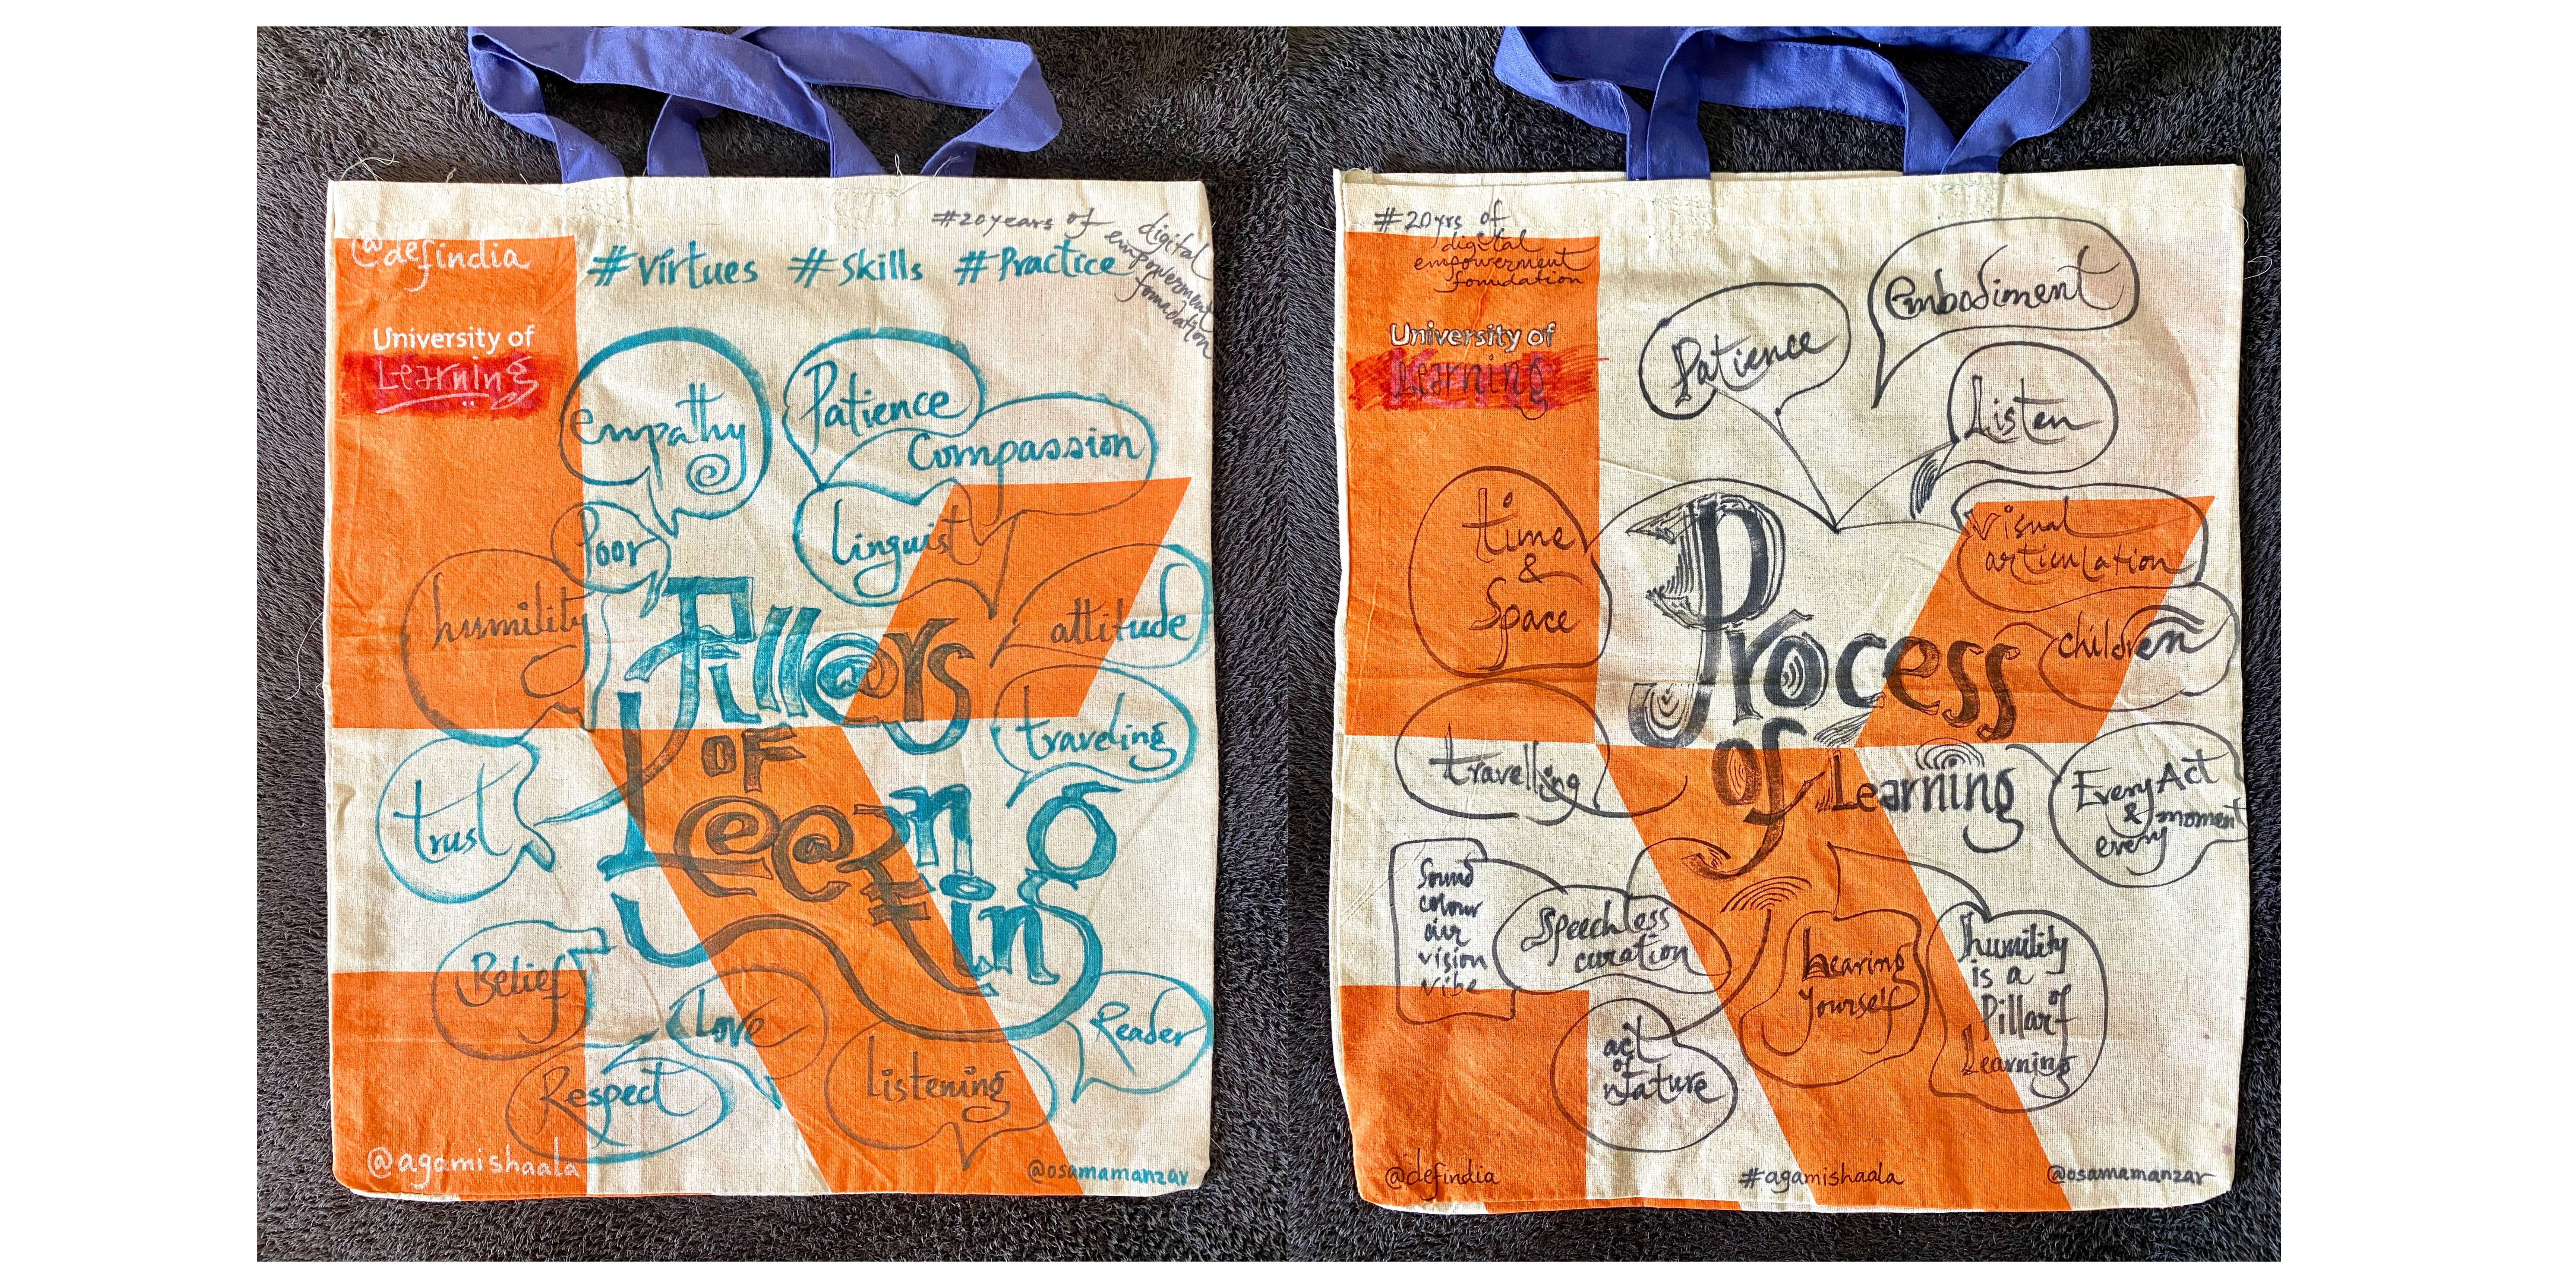 @defindia
#20years of
digital
empowerment
foundation
#virtues #skills #Practice
University of
Learning
empathy
Patience
Compassion
Poor
linguist
humility
attitude
Pill@rs
traveling
OF
Learning
trust
Belief
Love
Reader
Respect
Listening
@agamishaala
@osamamanzar
#20yrs of
digital
empowerment
foundation
University of
Learning
embodiment
Patience
Listen
time
&
Space
visual
articulation
children
Process
of Learning
travelling
Every Act
& moment
every
Sound
colour
air
vision
vibe
Speechless
curation
hearing
yourself
humility
is a
Pillar of
Learning
act
of
nature
@defindia
#agamishaala
@osamamanzar